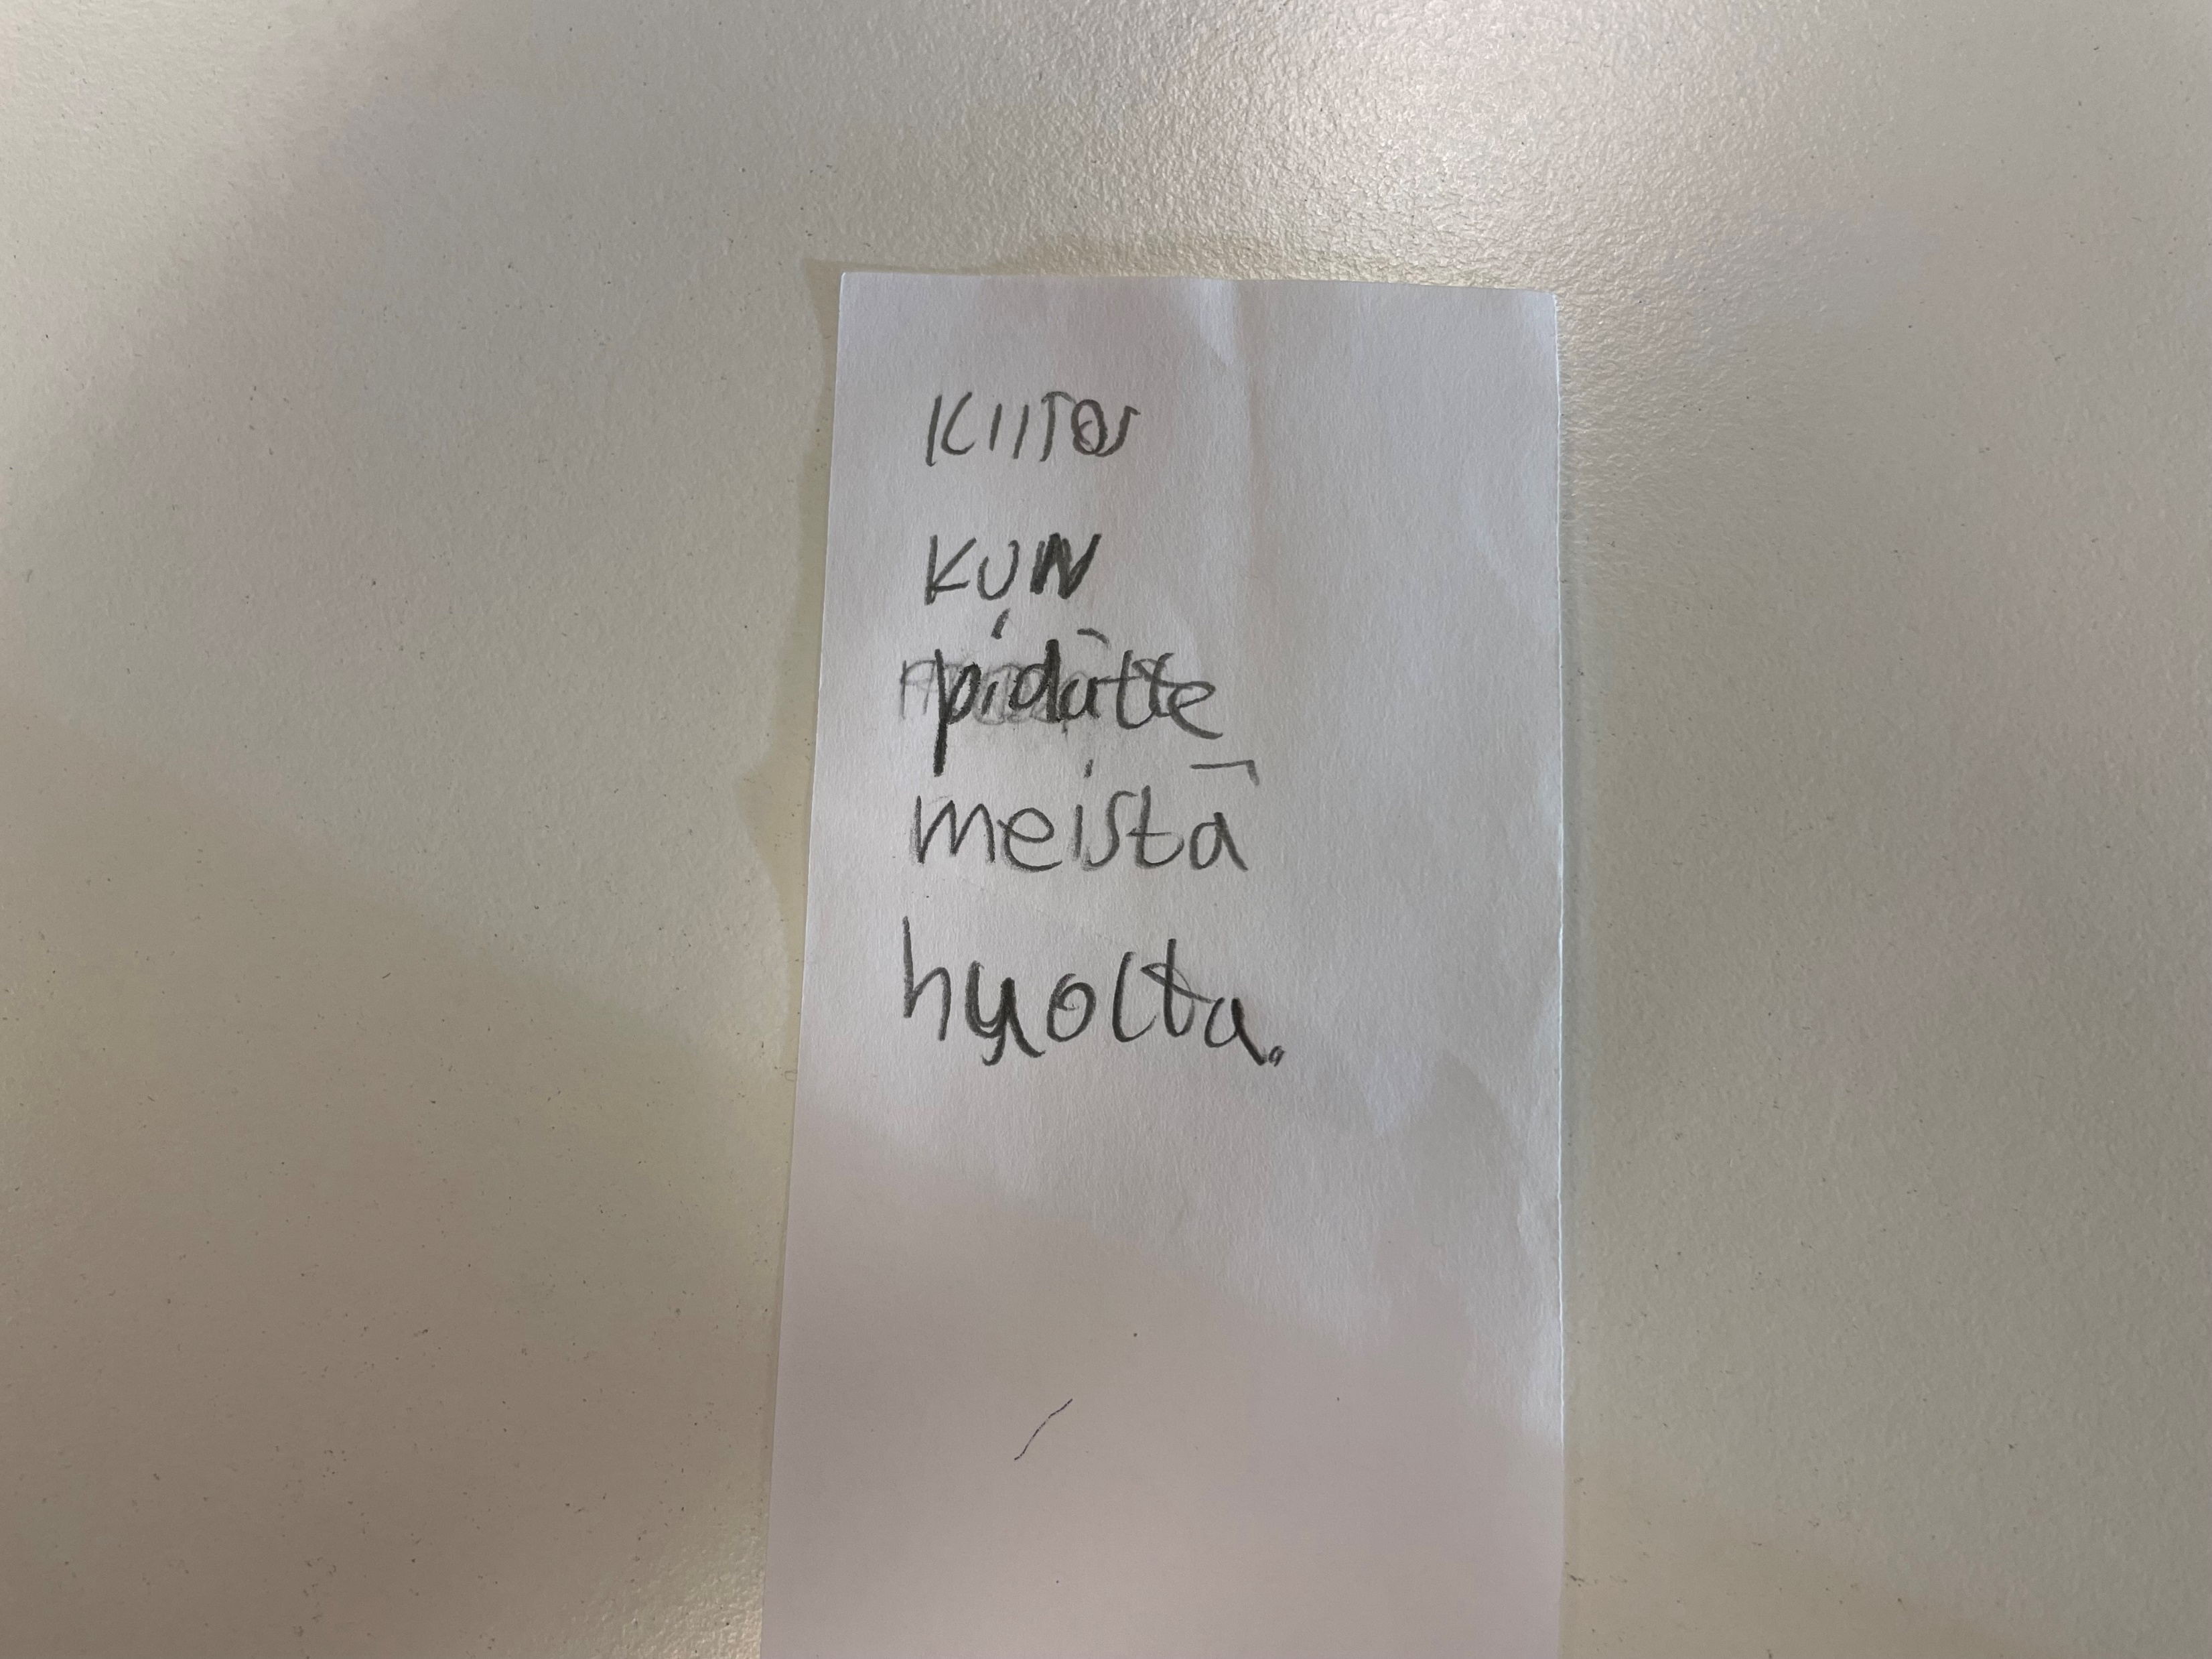 KIITOS
KUN
pidätte
meistä
hyolta.